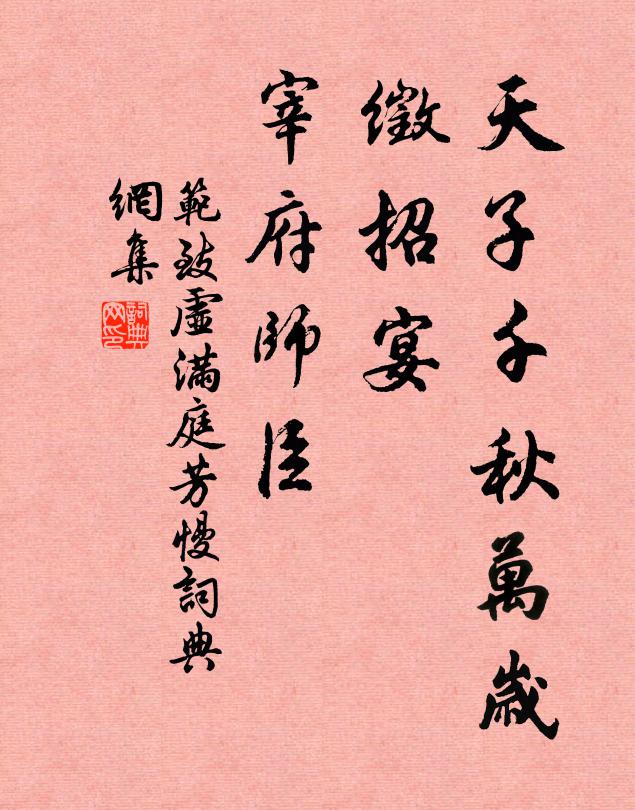 天子千秋萬歲
徵招宴
宰府師臣
範致虛滿庭芳慢詞典
網集
詞典
网印